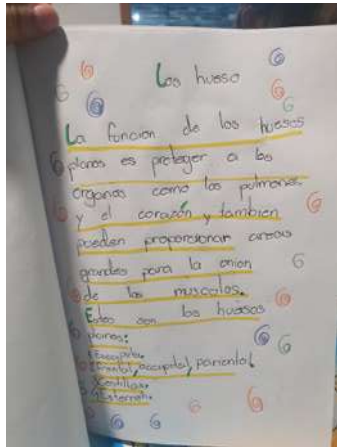 Los hueso
La funcion de los huesos
planos es proteger a los
organos como los pulmones
y el corazón y tambien
pueden proporcionar areas
grandes para la onion
de los muscolos.
Estos son los huesos
planos:
frontal, occipital, pariental
Costillas
Esternon